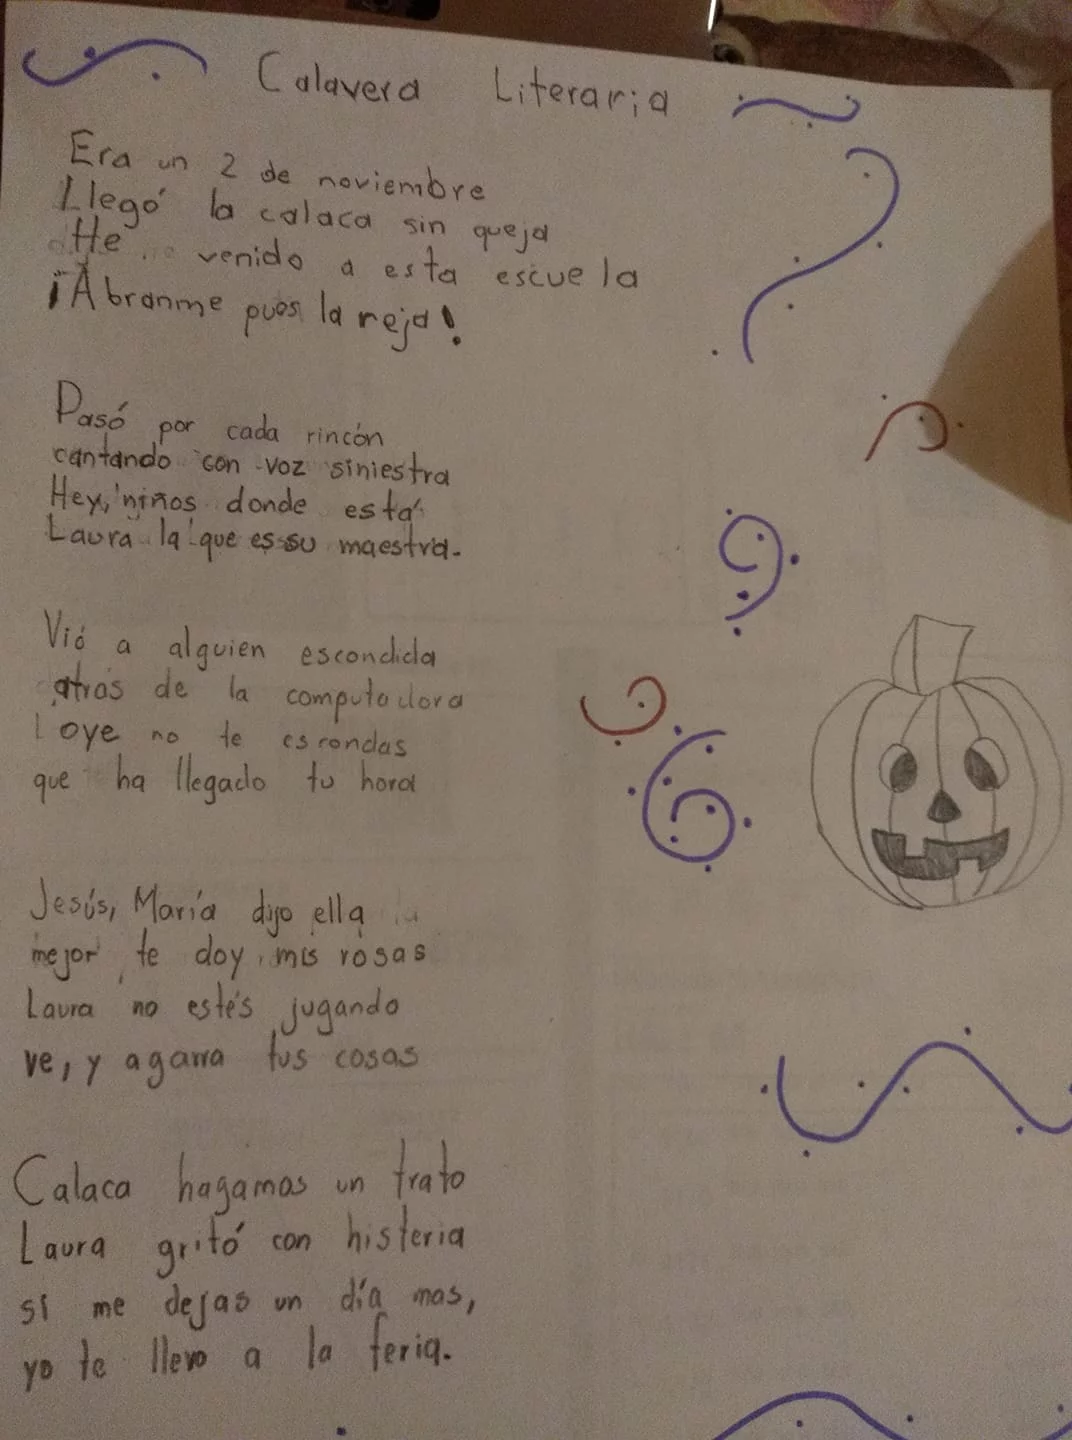 Calavera Literaria
Era un 2 de noviembre
Llegó la calaca sin queja
He venido a esta escuela
¡Abranme pues la reja!
Pasó por cada rincón
cantando con voz siniestra
Hey, niños donde está
Laura la que es su maestra.
Vió a alguien escondida
atras de la computadora
oye no te escondas
que ha llegado tu hora
Jesús, María dijo ella
mejor te doy mis rosas
Laura no estés jugando
ve, y agarra tus cosas
Calaca hagamos un trato
Laura gritó con histeria
si me dejas un día mas,
yo te llevo a la feria.